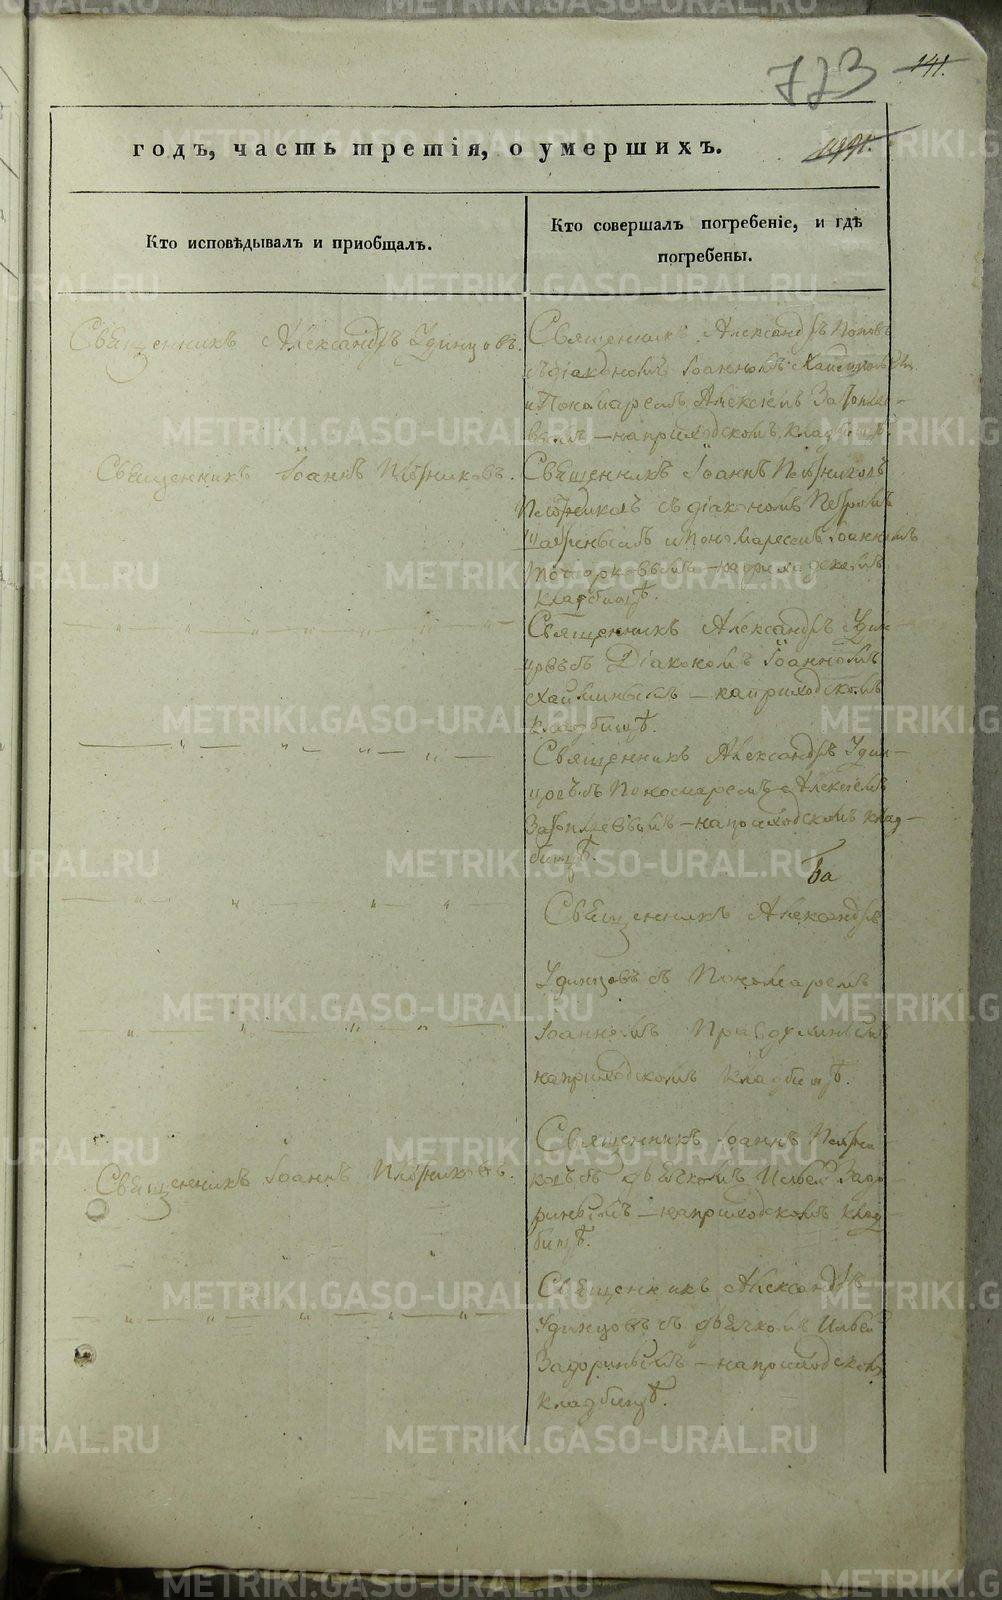 773
141.
годъ, часть третія, о умершихъ.
Кто исповѣдывалъ и приобщалъ.
Кто совершалъ погребеніе, и гдѣ
погребены.
Священникъ Александръ Удинцовъ.
Священникъ Александръ Поповъ
съ діакономъ Іоанномъ
и Пономаремъ Алексіемъ
на приходскомъ кладбищѣ.
Священникъ Іоаннъ Плотниковъ.
Священникъ Іоаннъ Плотниковъ
Плотниковъ съ діакономъ Петромъ
и Пономаремъ Іоанномъ
на приходскомъ
кладбищѣ.
Священникъ Александръ Удин-
цовъ съ Діакономъ Іоанномъ
на приходскомъ
кладбищѣ.
Священникъ Александръ Удин-
цовъ съ Пономаремъ Алексіемъ
на приходскомъ клад-
бищѣ.
Священникъ Александръ
Удинцовъ съ Пономаремъ
Іоанномъ
на приходскомъ кладбищѣ.
Священникъ Іоаннъ Плотниковъ.
Священникъ Іоаннъ Плотни-
ковъ съ дьячкомъ Ильей Задо-
ринымъ — на приходскомъ клад-
бищѣ.
Священникъ Александръ
Удинцовъ съ дьячкомъ Ильей
Задоринымъ — на приходскомъ
кладбищѣ.
METRIKI.GASO-URAL.RU